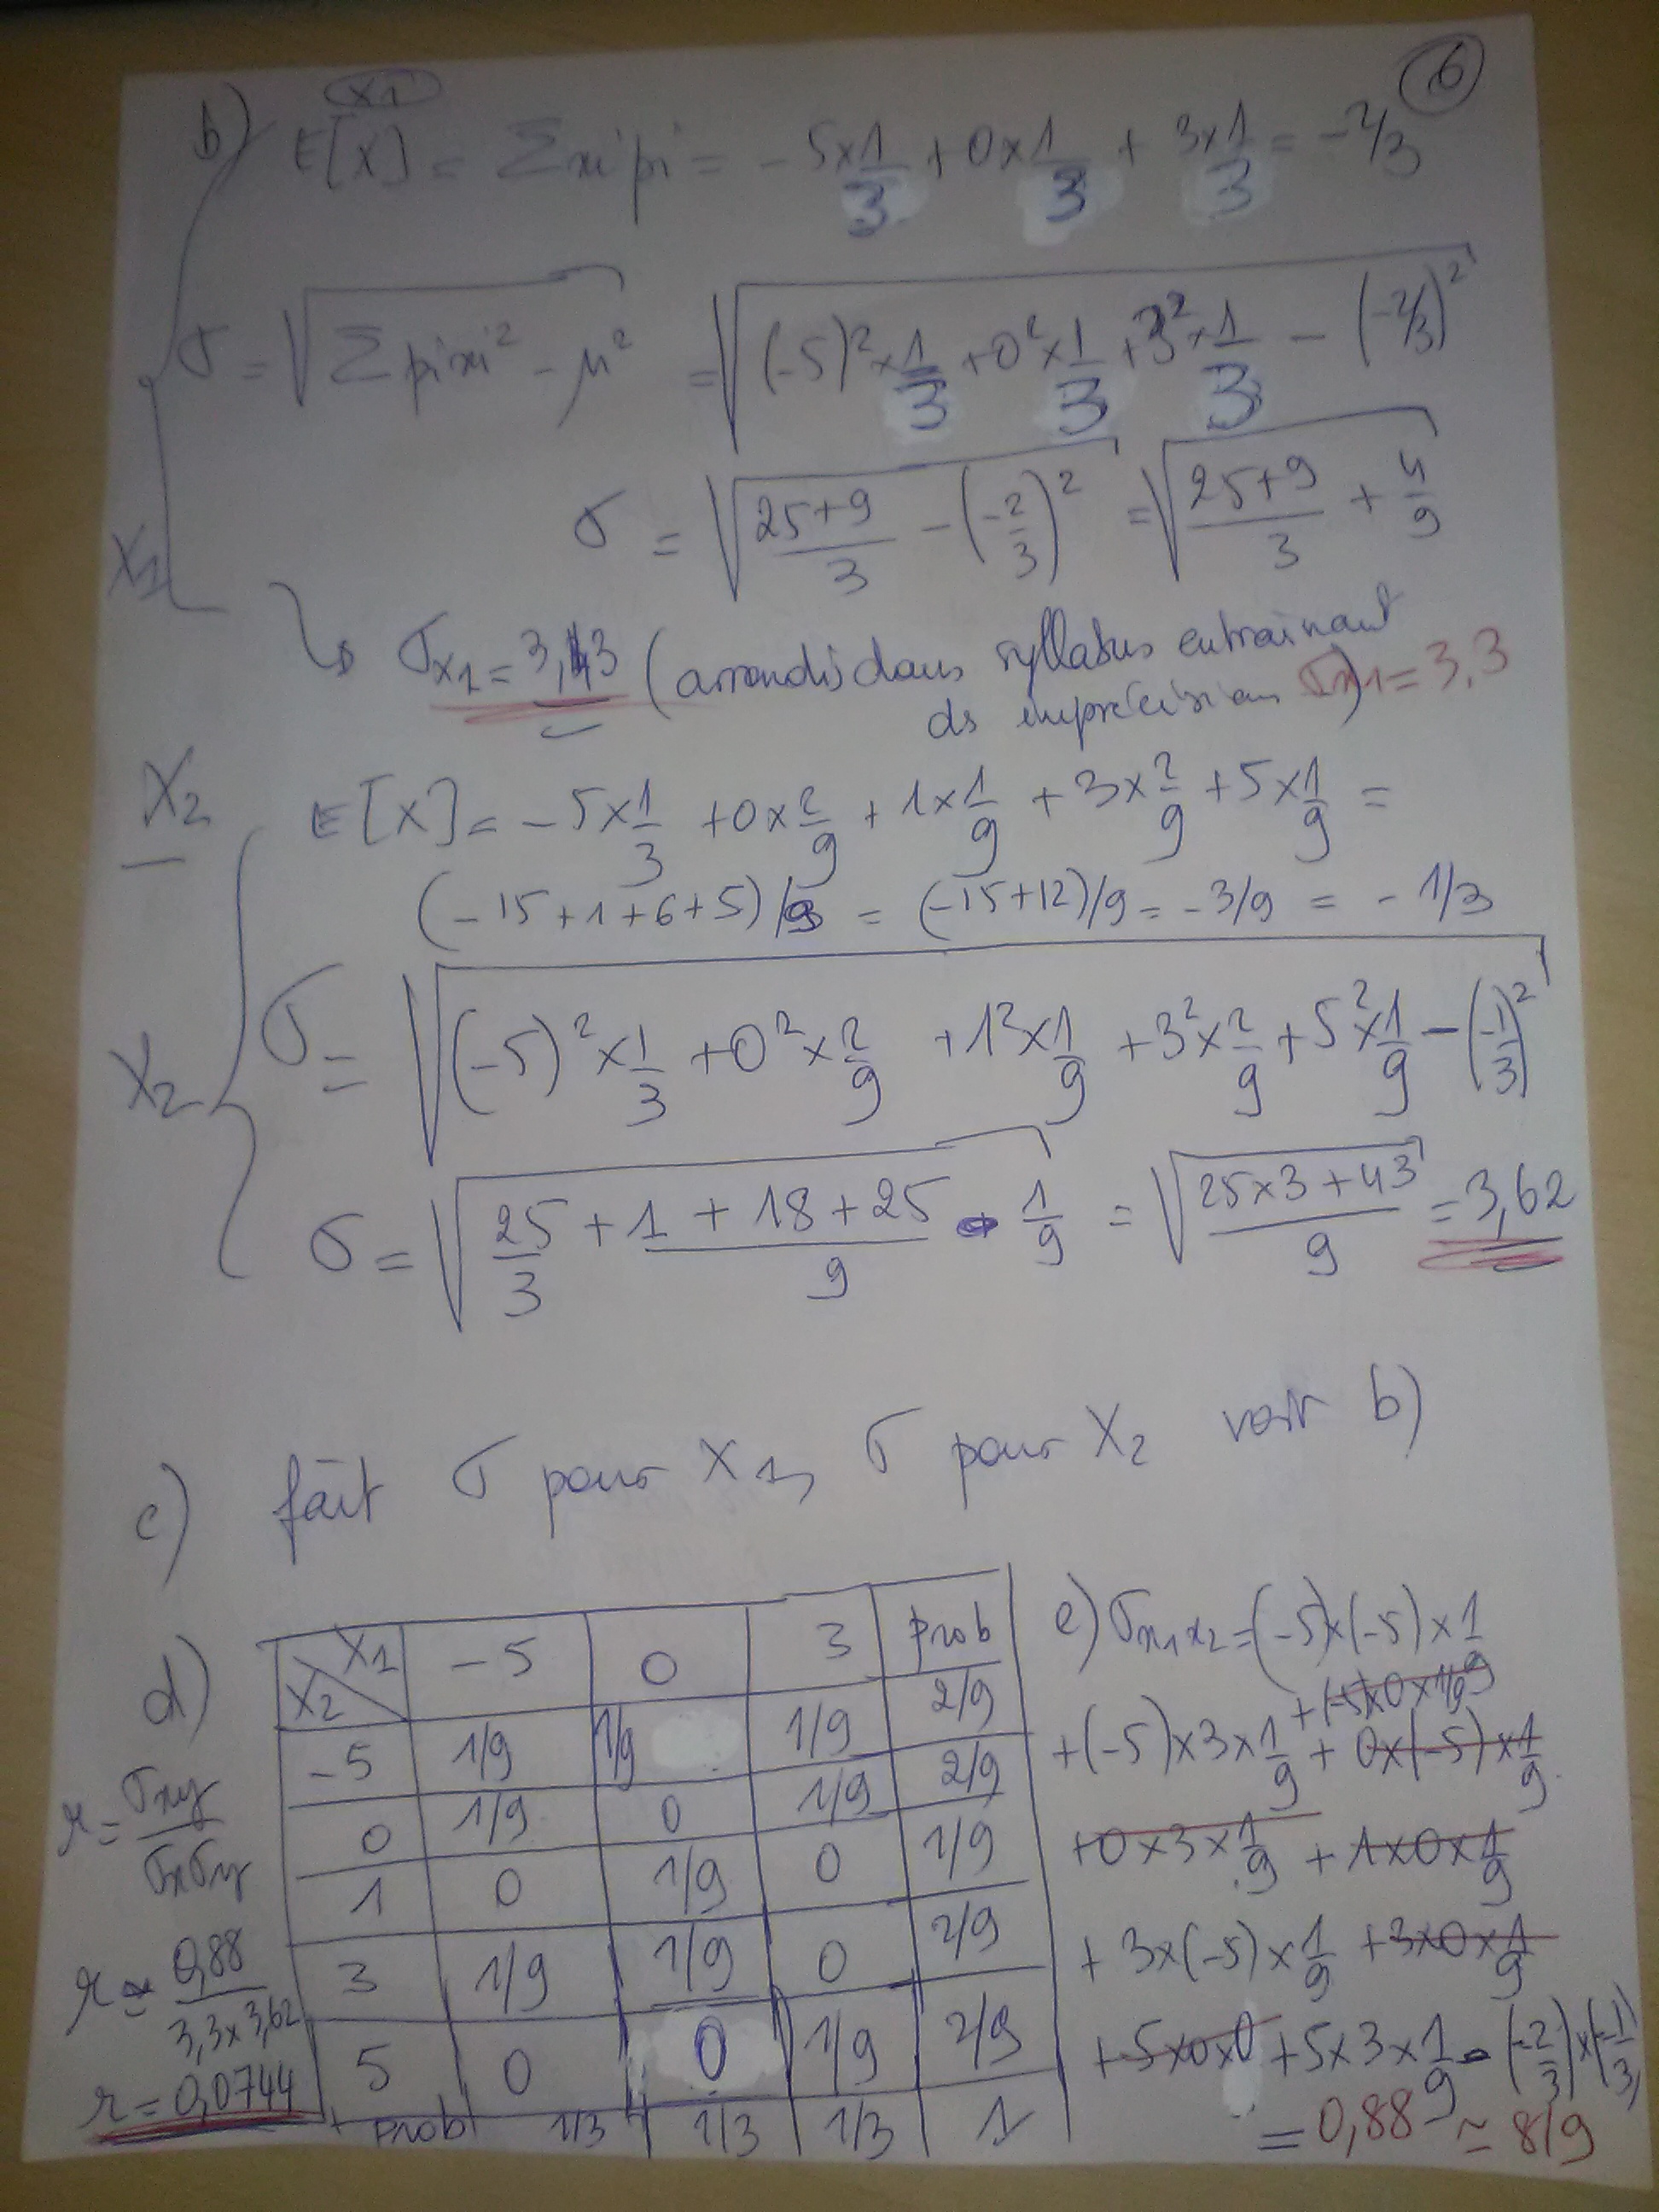 6
x1
b) E[X] = Σxipi = -5×1/3 + 0×1/3 + 3×1/3 = -2/3
σ = √(Σpixi² - μ²) = √((-5)²×1/3 + 0²×1/3 + 3²×1/3 - (-2/3)²)
σ = √((25+9)/3 - (-2/3)²) = √((25+9)/3 + 4/9)
X1
↳ σx1 = 3,43 (arrondis dans syllabus entrainant
ds imprécision) σx1 = 3.3
X2
E[X] = -5×1/3 + 0×2/9 + 1×1/9 + 3×2/9 + 5×1/9 =
(-15+1+6+5)/9 = (-15+12)/9 = -3/9 = -1/3
X2
σ = √((-5)²×1/3 + 0²×2/9 + 1²×1/9 + 3²×2/9 + 5²×1/9 - (-1/3)²)
σ = √(25/3 + (1+18+25)/9 - 1/9) = √((25×3+43)/9) = 3,62
c) fait σ pour X1, σ pour X2 voir b)
d)
X1 -5 0 3 Prob
X2
-5 1/9 1/9 1/9 2/9
0 1/9 0 1/9 2/9
1 0 1/9 0 1/9
3 1/9 1/9 0 2/9
5 0 0 1/9 2/9
Prob 1/3 1/3 1/3 1
r = σxy/σxσy
r ≃ 0,88/3,3×3,62
r = 0,0744
e) σx1x2 = (-5)×(-5)×1/9
+(-5)×0×1/9
+(-5)×3×1/9 + 0×(-5)×1/9
+0×3×1/9 + 1×0×1/9
+3×(-5)×1/9 + 3×0×1/9
+5×0×0 + 5×3×1/9 - (-2/3)×(-1/3)
= 0,88 ≃ 8/9